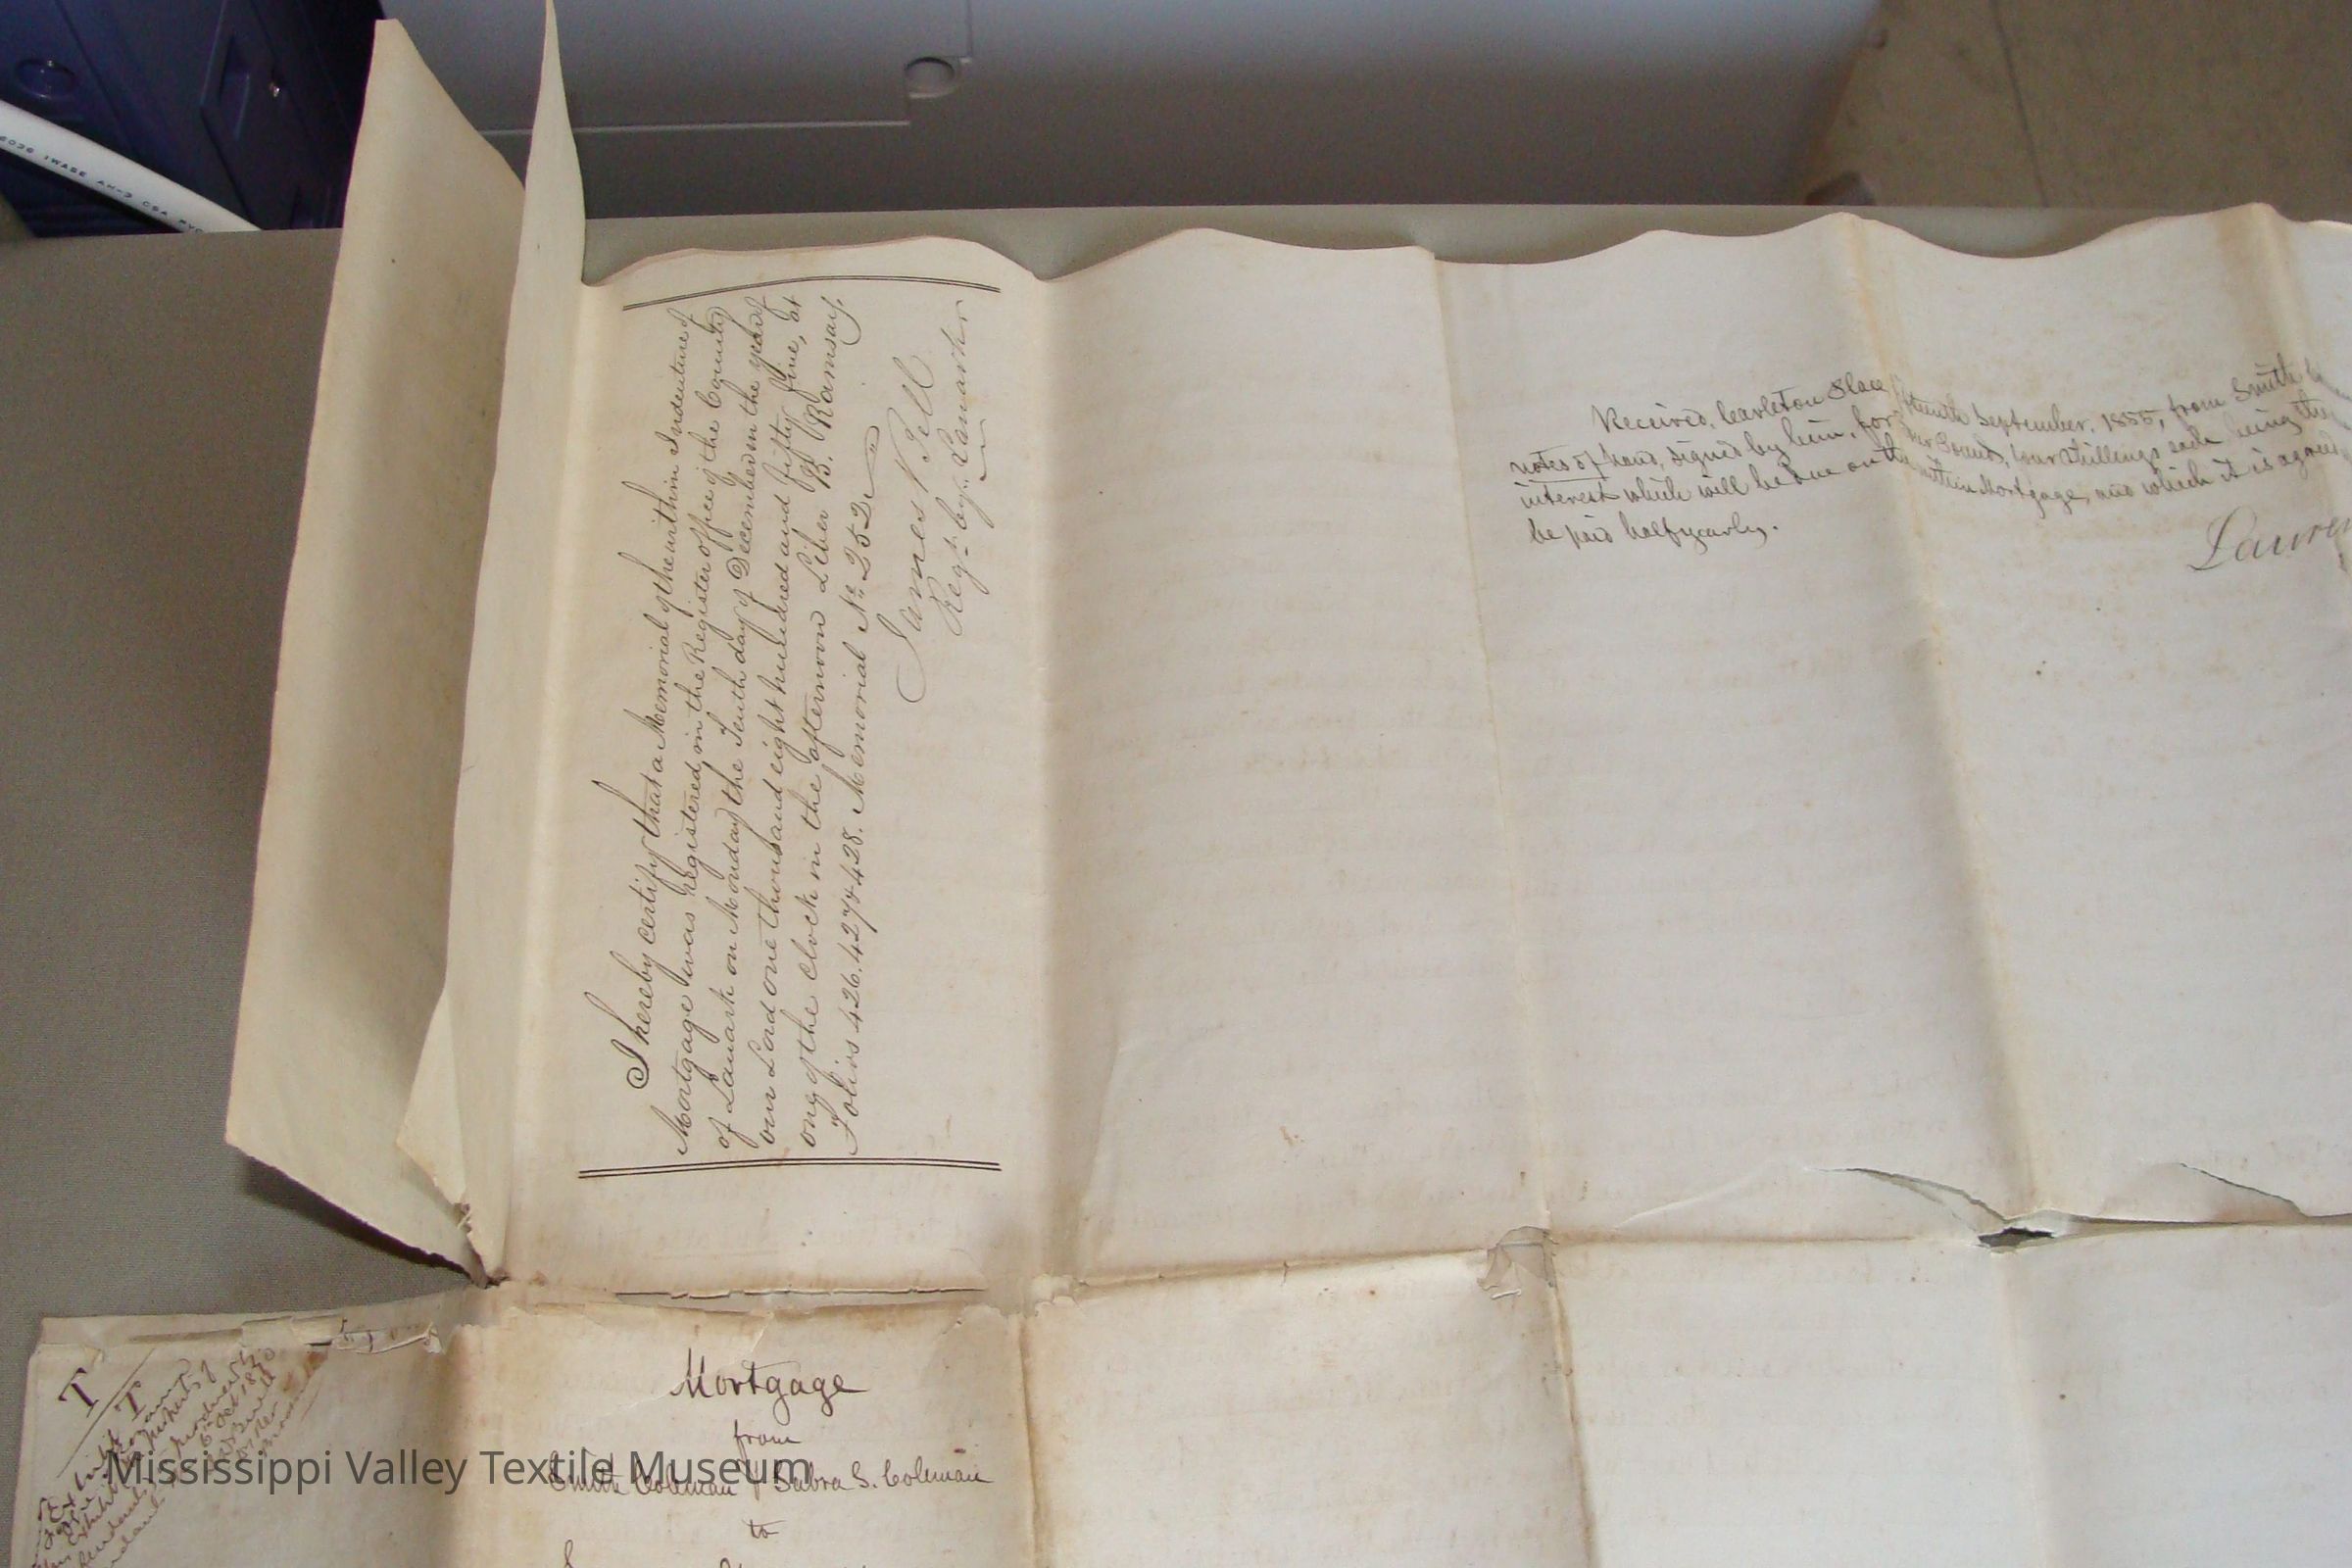 I hereby certify that a Memorial of the within Indenture of
Mortgage was Registered in the Register office of the County
of Lanark on Monday the Tenth day of December in the year of
our Lord one thousand eight hundred and fifty five, at
one of the Clock in the afternoon Liber B. Ramsay.
Folios 426. 427 & 428. Memorial No. 252
James Bell
Regr. by. Lanark
Received, Carleton Place September, 1855, from Smith
notes of hand, signed by him, for Pounds, four Shillings each being the
interest which will be due on the within Mortgage, and which it is agreed
be paid half yearly.
Mortgage
from
Smith Coleman & Sabra S. Coleman
to
T
T
Exhibit
Oct
Mississippi Valley Textile Museum
6026 IWASE AH-3 CSA